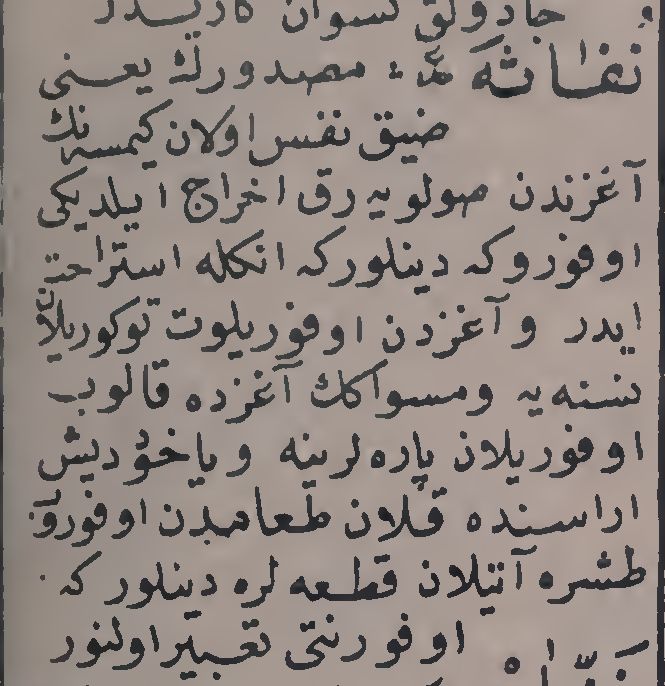 جادولق نسوان كاريدر
نفاثه مصدردرك يعنى
ضيق نفس اولان كيمسه نك
آغزندن صولويه رق اخراج ايلديكى
اوفوروكه دينلوركه انكله استراحت
ايدر و آغزدن اوفوريلوت توكوريلان
نسنه يه ومسواكك آغزده قالوب
اوفوريلان پاره لرينه وياخود ديش
اراسنده قلان طعامدن اوفوروب
طشره آتيلان قطعه لره دينلور كه
اوفورنتى تعبير اولنور